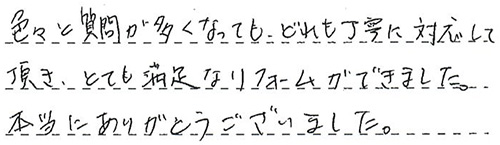 色々と質問が多くなっても、どれも丁寧に対応して
頂き、とても満足なリフォームができました。
本当にありがとうございました。